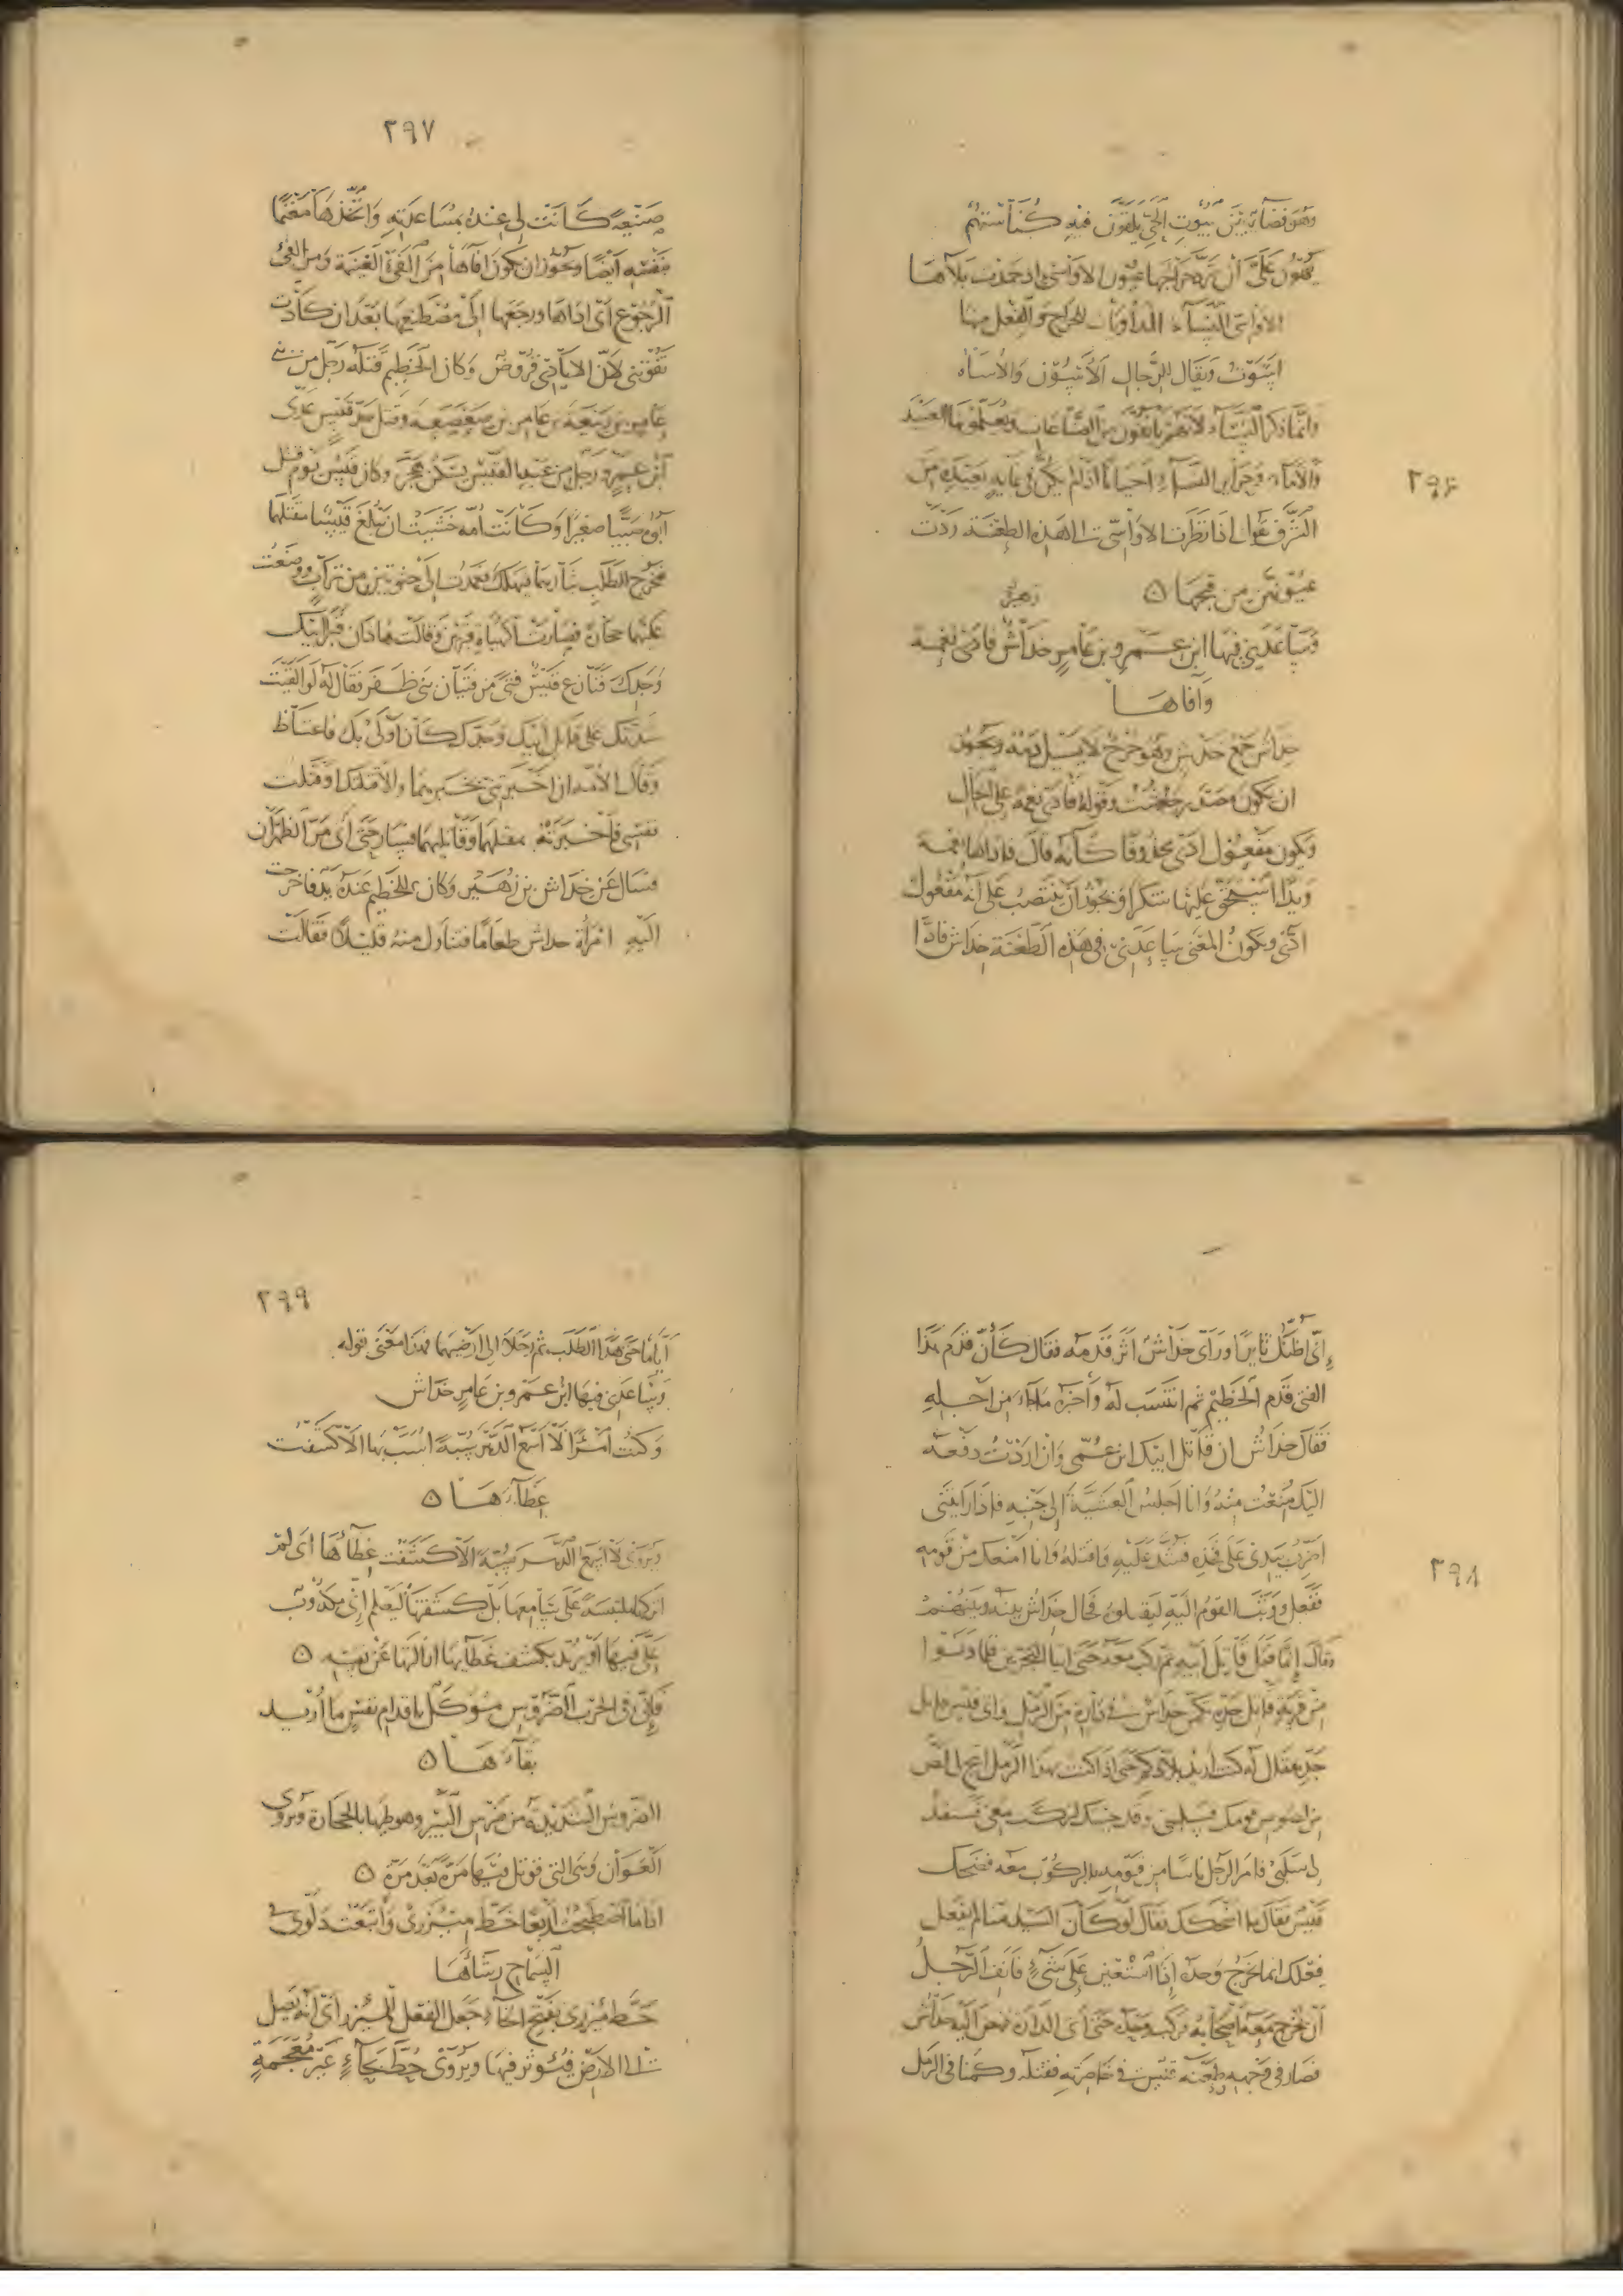 ٢٩٦
وهو فضاء بين بيوت الحي يلقون فيه كناستهم
يهون علي أن ترد جراحها عيون الاواسي اذ حمدت بلاءها
الاواسي النساء المداويات للجراح والفعل منها
اسوت ويقال للرجال الآسون والأساه
وانما ذكر النساء لانهم يأنفون من الصناعات ويعلمونها العبيد
والاماء
الشرف يقول اذا نظرت الاواسي الى هذه الطعنة ردت
عيونهن من قبحها ه
زهير
وساعدني فيها ابن عمرو بن عامر خداش فادى نعمة
وافاها
خداش جمع خدش وهو جرح لا يسيل دمه ويجوز
ان يكون مصدر خادشت وقوله فادى نعمة على الحال
ويكون مفعول ادى محذوفا كأنه قال فاداها نعمة
ويدا استحق عليها شكرا ويجوز ان ينتصب على انه مفعول
ادى ويكون المعنى ساعدني في هذه الطعنة خداش فادا
٢٩٧
صنيعة كانت لي عنده بمساعدته واتخذها مغنما
بنفسه ايضا ويجوز ان يكون افاها من الفيء الغنيمة ومن الفيء
الرجوع اى اداها ورجعها الى مصطنعها بعد ان كادت
تفوتني لان الايادي قروض وكان الخطيم قتله رجل من بني
عامر بن ربيعة بن عامر بن صعصعة وقتل جد قيس عدي
ابن عمرو رجل من عبد القيس يسكن هجر وكان قيس يوم قتل
ابوه صبيا صغيرا وكانت امه خشيت ان يبلغ قيسا مقتلهما
فخرج لطلب ثأرهما فيهلك فعمدت الى جثوتين من تراب ووضعت
عليهما حجارة فصارت كهيأة قبرين وقالت هاذان قبر ابيك
وجدك فنازع قيس فتى من فتيان بني ظفر فقال له لو القيت
شدتك على قاتل ابيك وجدك كان اولى بك فاغتاظ
وقال لامه ان اخبرتني بخبرهما والا قتلتك او قتلت
نفسي فاخبرته بمقتلهما وقاتليهما فسار حتى اتى مر الظهران
فسال عن خداش بن زهير وكان للخطيم عنده يد فاخرجت
اليه امرأة خداش طعاما فتناول منه قليلا فقالت
٢٩٨
إني اظنك ثائرا ورأى خداش اثر قدمه فقال كأن قدم هذا
الفتى قدم الخطيم ثم انتسب له وأخبره ما جاء من اجله
فقال خداش ان قاتل ابيك ابن عمي وان اردت دفعه
اليك منعت منه وانا اجلس العشية الى جنبه فاذا رأيتني
اضرب بيدي على فخذه فشد عليه واقتله وانا امنعك من قومه
ففعل ووثب القوم اليه ليقتلوه فحال خداش بينه وبينهم
وقال إنما قتل قاتل ابيه ثم ركب معه حتى اتيا البحرين فلما دنوا
من قرية قاتل جده كمن خداش في دارة من الرمل واتى قيس قاتل
جده فقال له كنت اريد بلادكم حتى اذا كنت بهذا الرمل اتى لص
من لصوص قومك فسلبني وقد جئتك لتركب معي فتستنقذ
لي سلبي فامر الرجل ناسا من قومه بالركوب معه فضحك
قيس فقال ما اضحكك فقال لو كان السيد منا لم يفعل
فعلك انما يخرج وحده اذا استعين على شيء فانف الرجل
أن يخرج معه اصحابه وركب وحده حتى اتى الدارة فنهض اليه خداش
فصار في وجهه وطعنه قيس في خاصرته فقتله وكمنا في الرمل
٢٩٩
أياما حتى هدأ الطلب ثم رحلا الى ارضهما فهذا معنى قوله
وساعدني فيها ابن عمرو بن عامر خداش
وكنت امرءا لا اسمع الدهر سبة اسب بها الا كشفت
غطاءها ه
ويروى لا اسمع الدهر سبة الا كشفت غطاءها اى لم
اتركها ملتبسة على سامعها بل كشفتها ليعلم إني مكذوب
علي فيها أو يريد بكشف غطائها ازالتها عن نفسه ه
فإني في الحرب الضروس موكل باقدام نفس ما أريد
بقاءها ه
الضروس الشديدة من ضرس البير وهو طيها بالحجارة ويروى
العوان وهى التي قوتل فيها مرة بعد مرة ه
اذا ما اصطبحت اربعا خط مئزري وأتبعت دلوي في
السماح رشاءها
خط مئزري بفتح الخاء جعل الفعل للمئزر اى انه يصل
الى الارض فيؤثر فيها ويروى حط بحاء غير معجمة